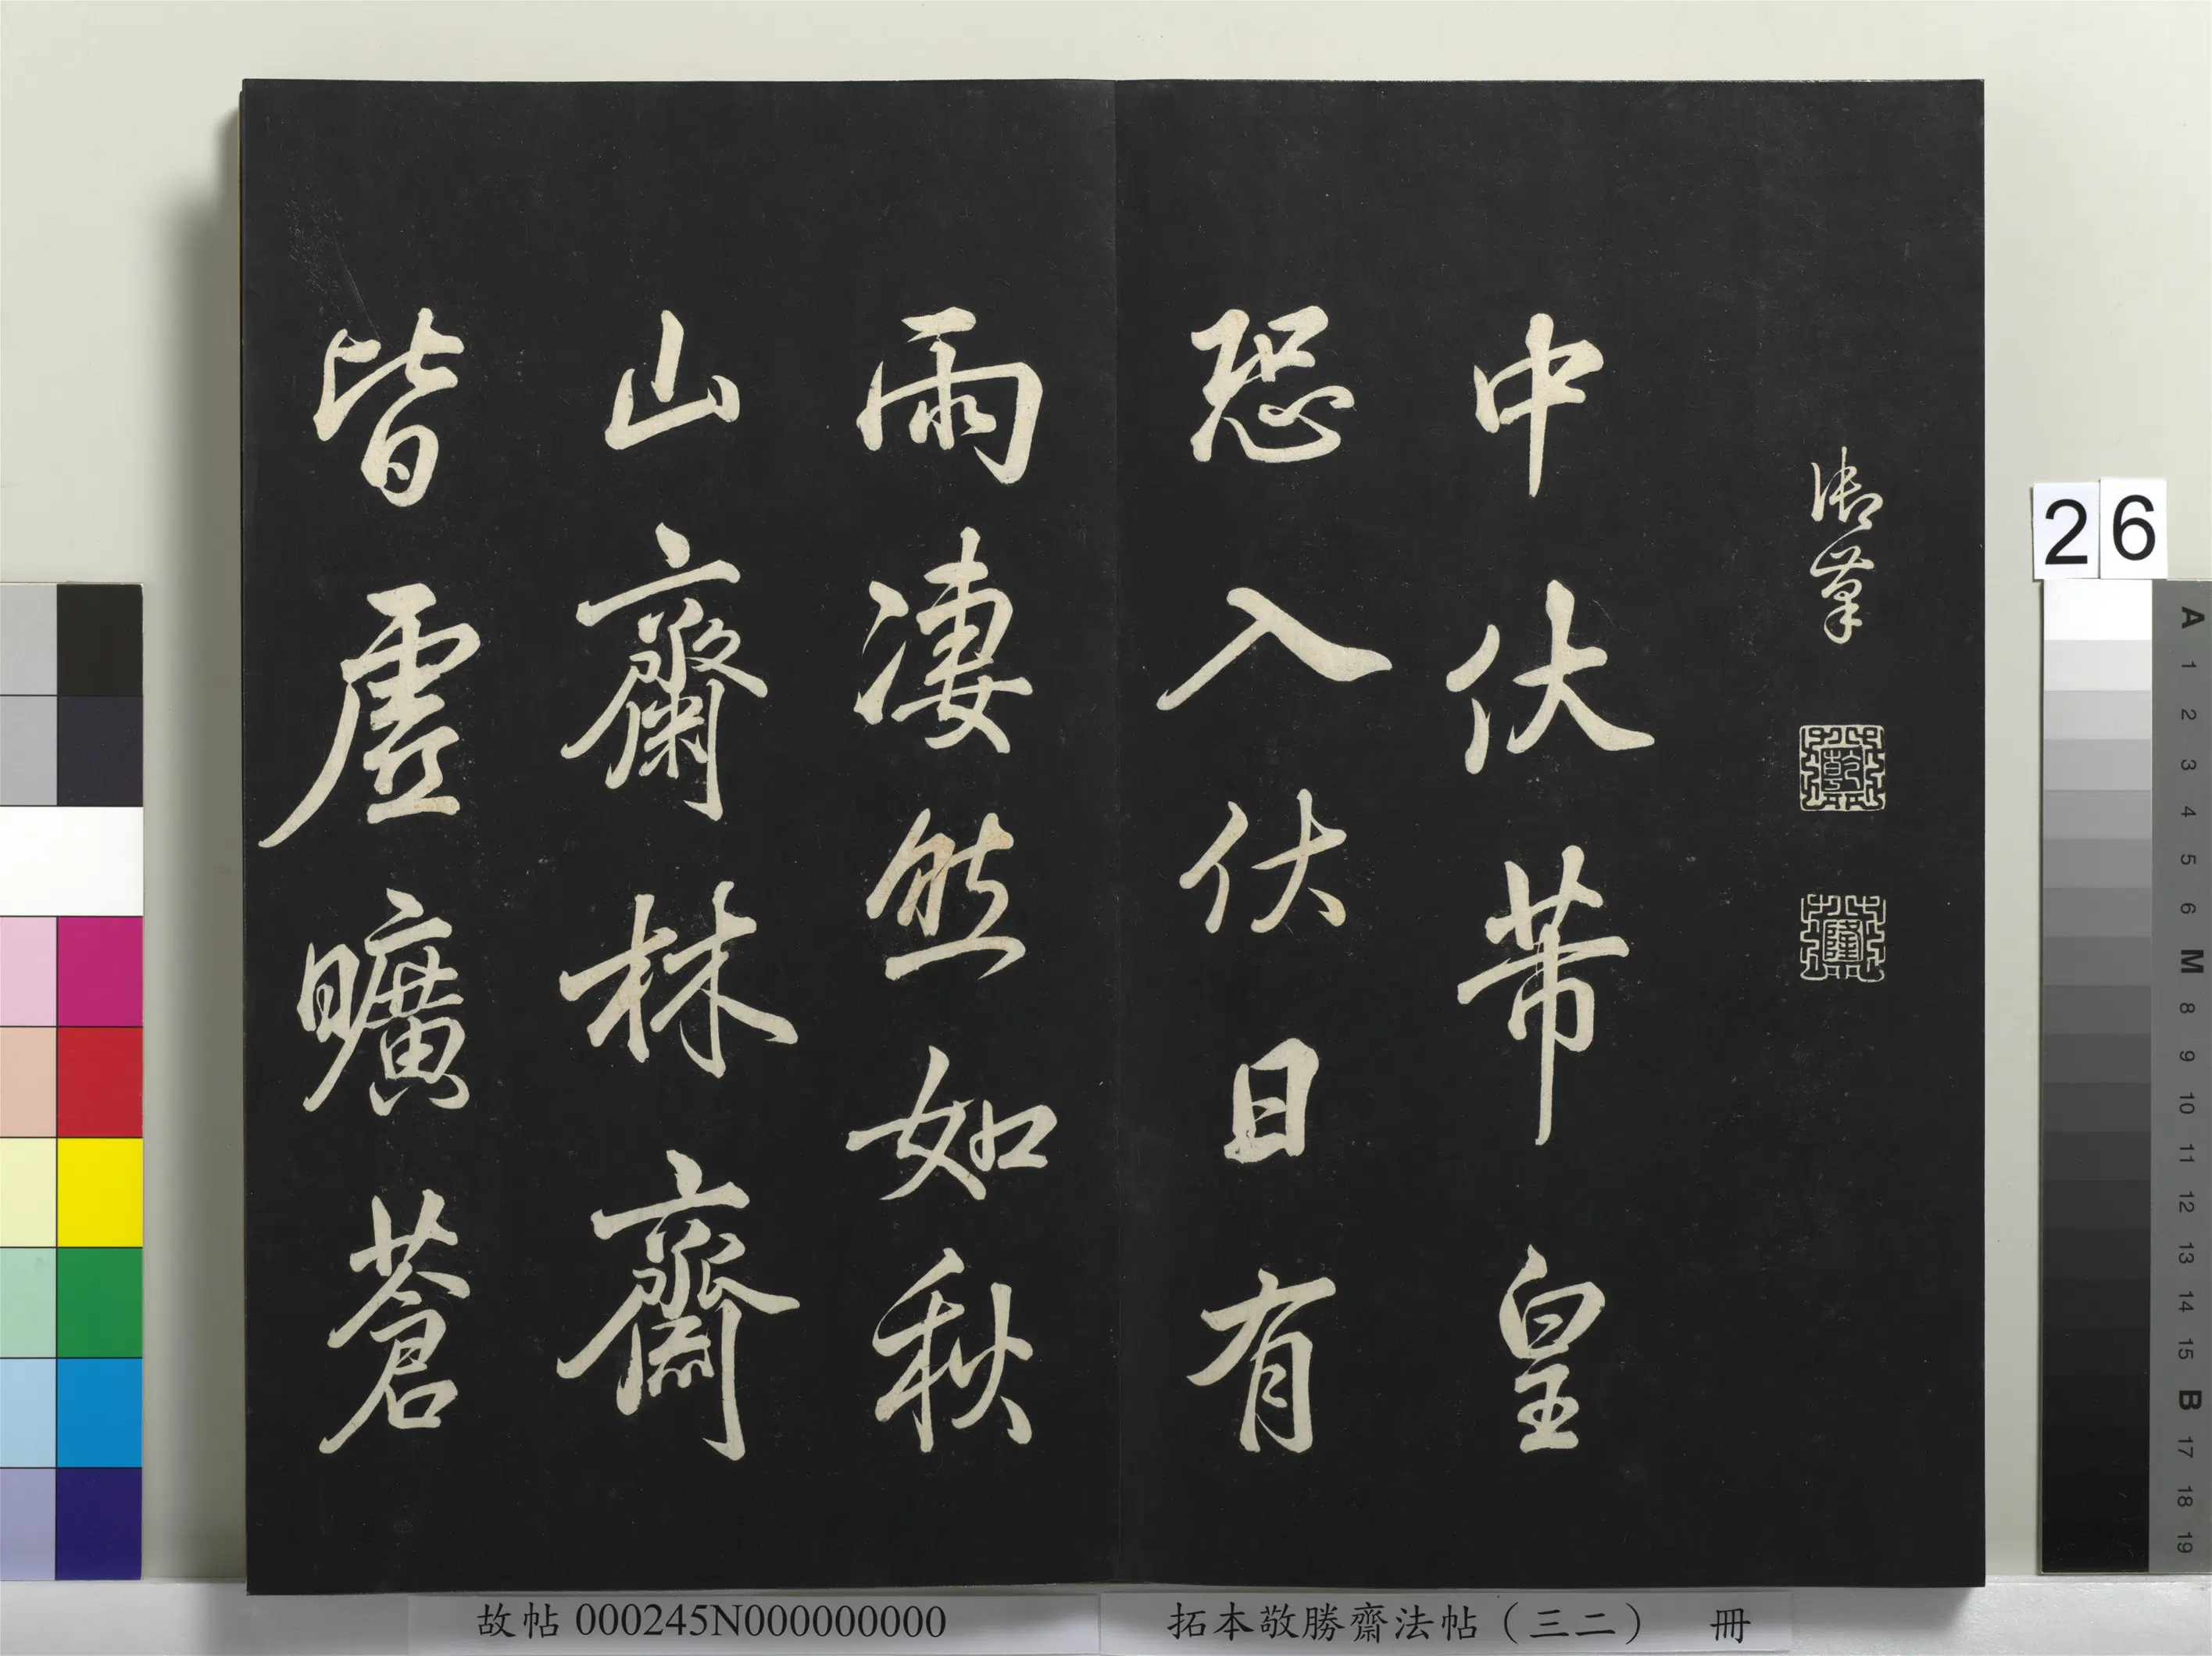 御筆
乾
隆
中伏芾皇
恐入伏日有
雨凄然如秋
山齋林齋
皆虛曠蒼
26
A 1 2 3 4 5 6 M 8 9 10 11 12 13 14 15 B 17 18 19
故帖 000245N000000000
拓本敬勝齋法帖（三二） 冊